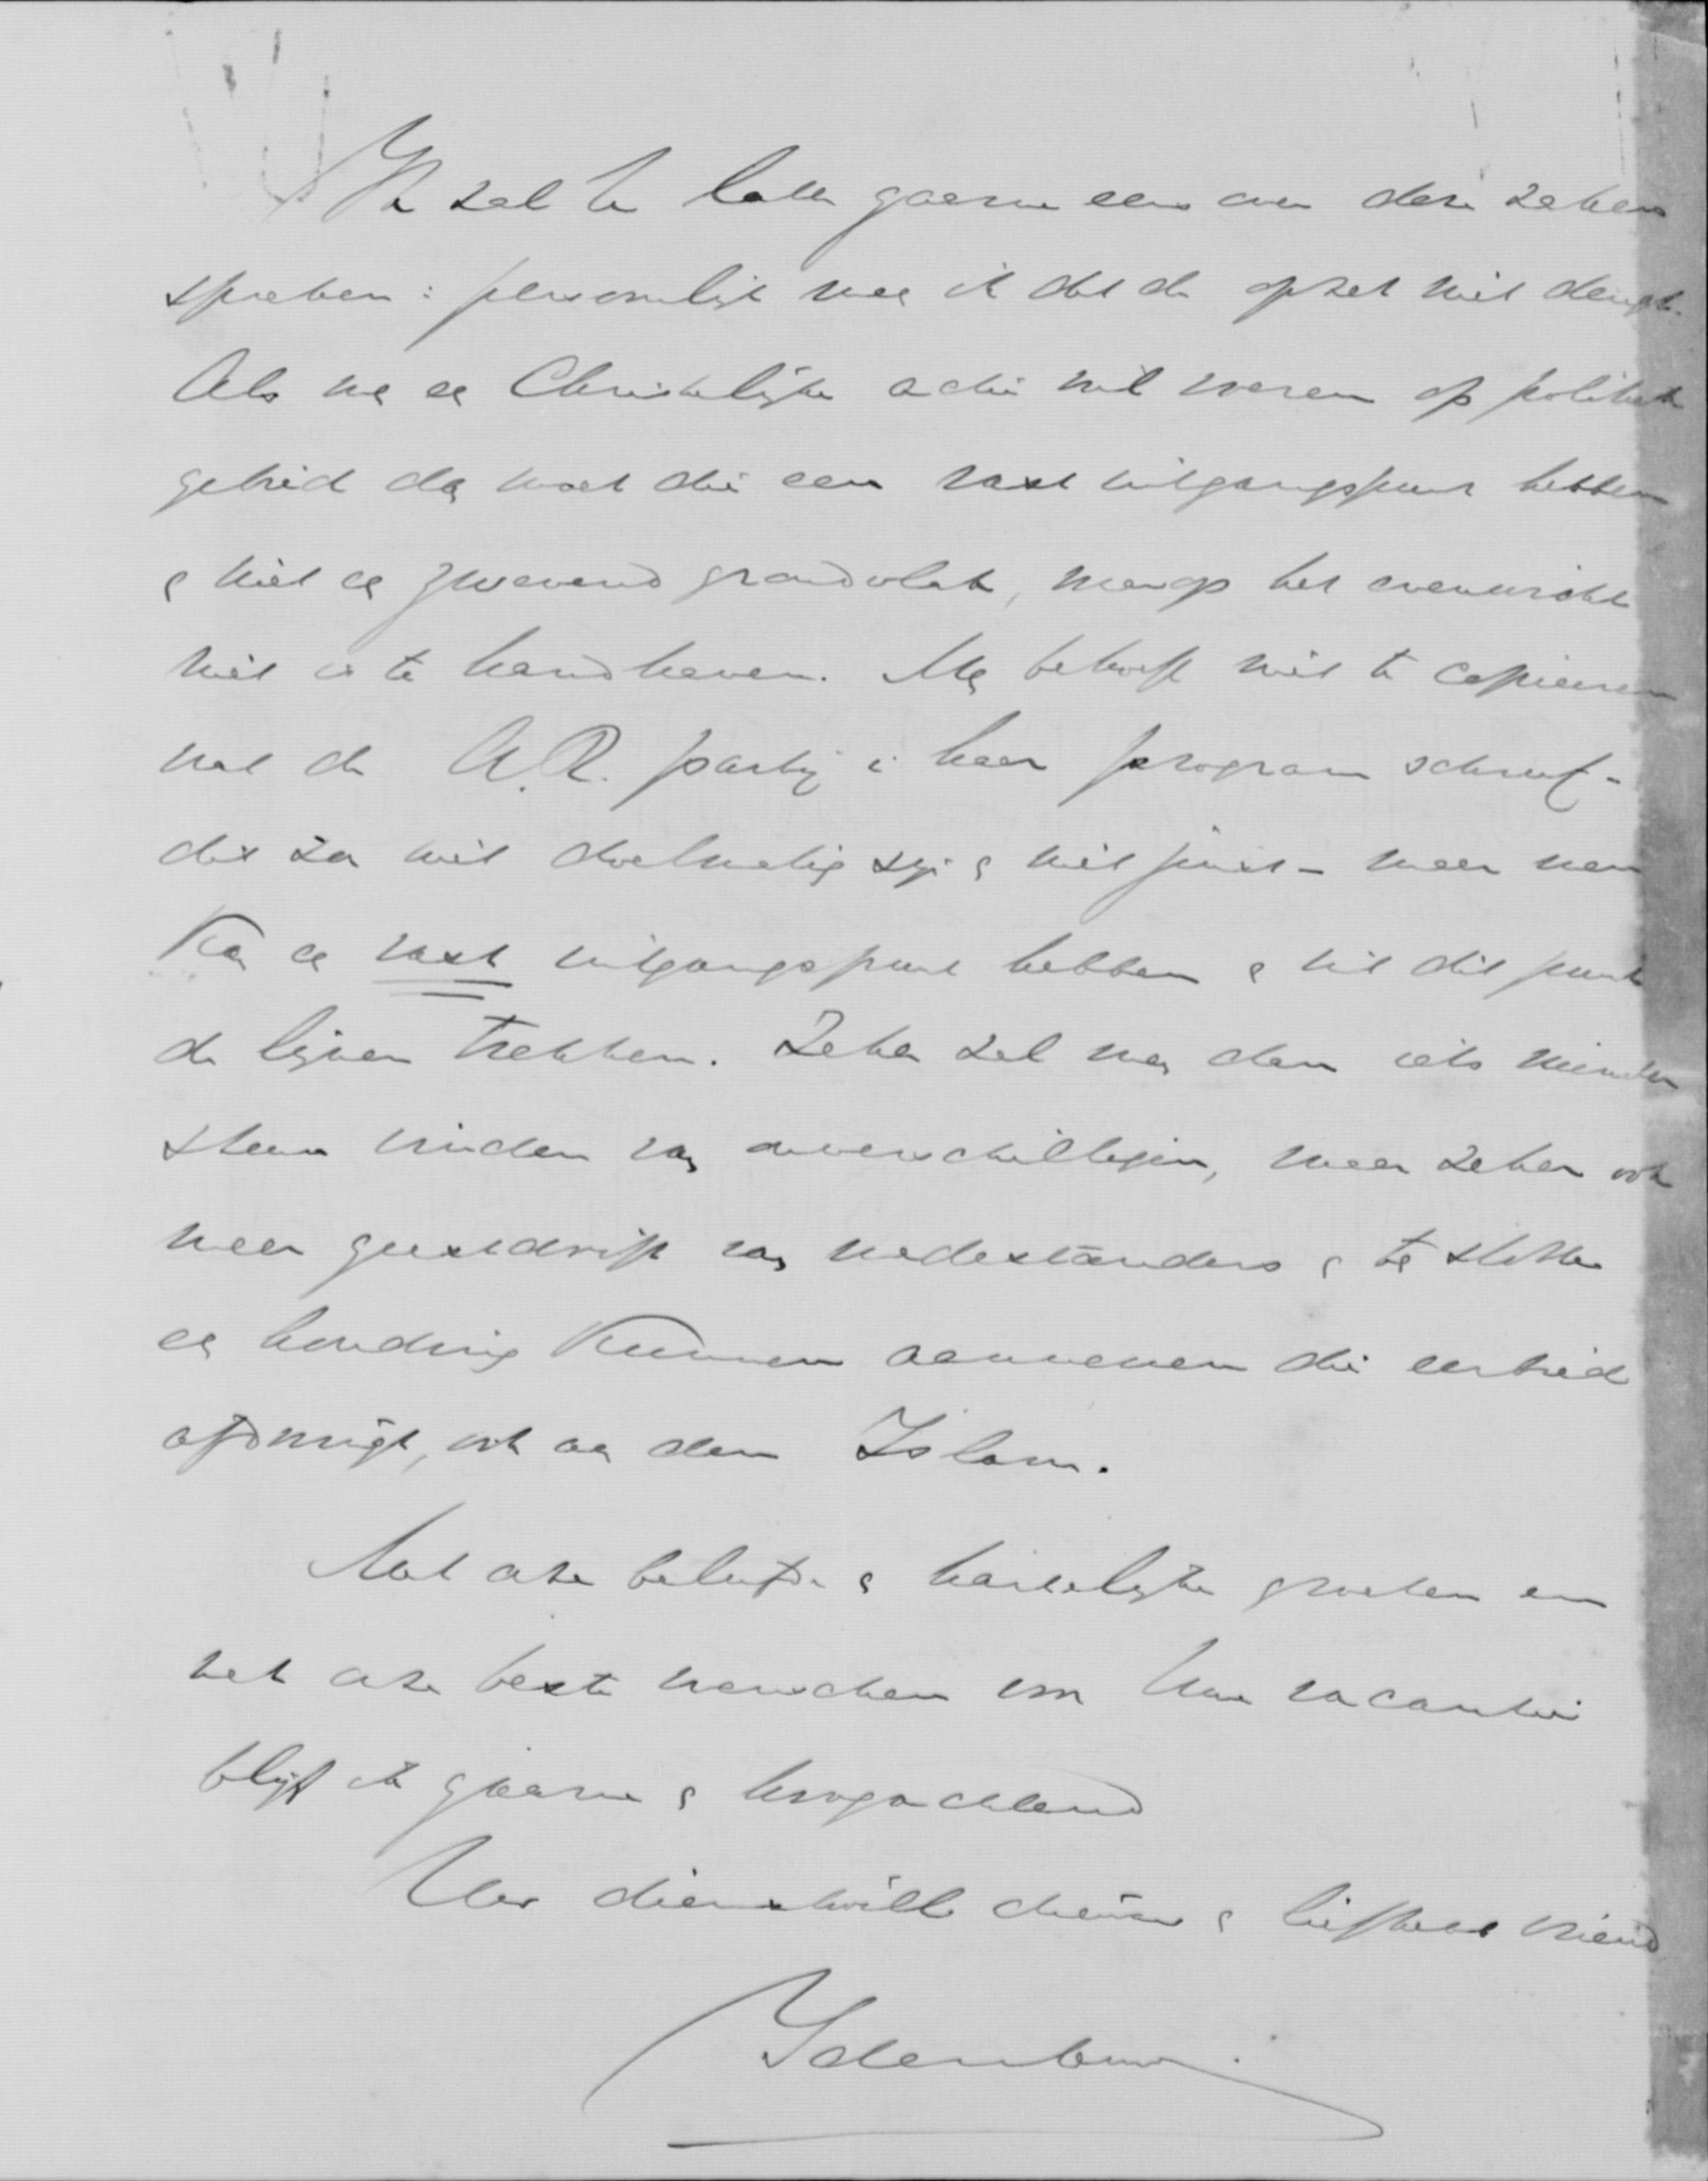 Ik zal te       gaarne eens over deze zaken
spreken: persoonlijk mee ik dat de opzet niet deugt.
Als men een Christelijke actie wil voeren op politiek
gebied dan moet die een vast uitgangspunt hebben
en niet een zwevend grondvlak, waarop het evenwicht
niet is te handhaven. Men behoeft niet te copieeren
wat de A.R. partij in haar program schreef -
dit zou niet doelmatig zijn en niet juist - maar men
kan een vast uitgangspunt hebben en uit dit punt
de lijnen trekken. Zeker zal men dan iets minder
steun vinden van onverschilligen, maar zeker ook
meer geestdrift van medestanders en ten slotte
een houding kunnen aannemen die eerbied
afdwingt, ook aan den Islam.
Met onze beleefde en hartelijke groeten en
met onze beste wenschen voor Uw vacantie
blijf ik gaarne en hoogachtend
Uw dienstwill. dienaar en liefheb. vriend
Idenburg.